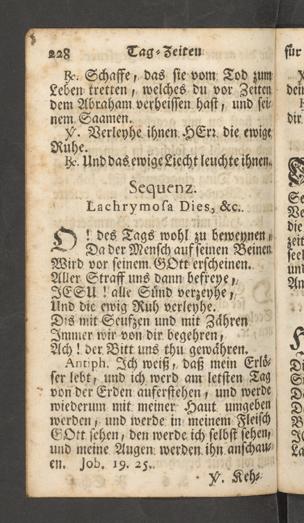 228 Tag-Zeiten
℟. Schaffe, das sie vom Tod zum
Leben tretten, welches du vor Zeiten
dem Abraham verheissen hast, und sei-
nem Saamen.
℣. Verleyhe ihnen HErr die ewige
Ruhe.
℟. Und das ewige Liecht leuchte ihnen.
Sequenz.
Lachrymosa Dies, &c.
O! des Tags wohl zu beweynen,
Da der Mensch auf seinen Beinen
Wird vor seinem GOtt erscheinen.
Aller Straff uns dann befreye,
JESU! alle Sünd verzeyhe,
Und die ewig Ruh verleyhe.
Dis mit Seufzen und mit Zähren
Immer wir von dir begehren,
Ach! der Bitt uns thu gewähren.
Antiph. Ich weiß, daß mein Erlö-
ser lebt, und ich werd am letsten Tag
von der Erden auferstehen, und werde
wiederum mit meiner Haut umgeben
werden, und werde in meinem Fleisch
GOtt sehen, den werde ich selbst sehen,
und meine Augen werden ihn anschau-
en. Job. 19. 25.
℣. Keh-
für